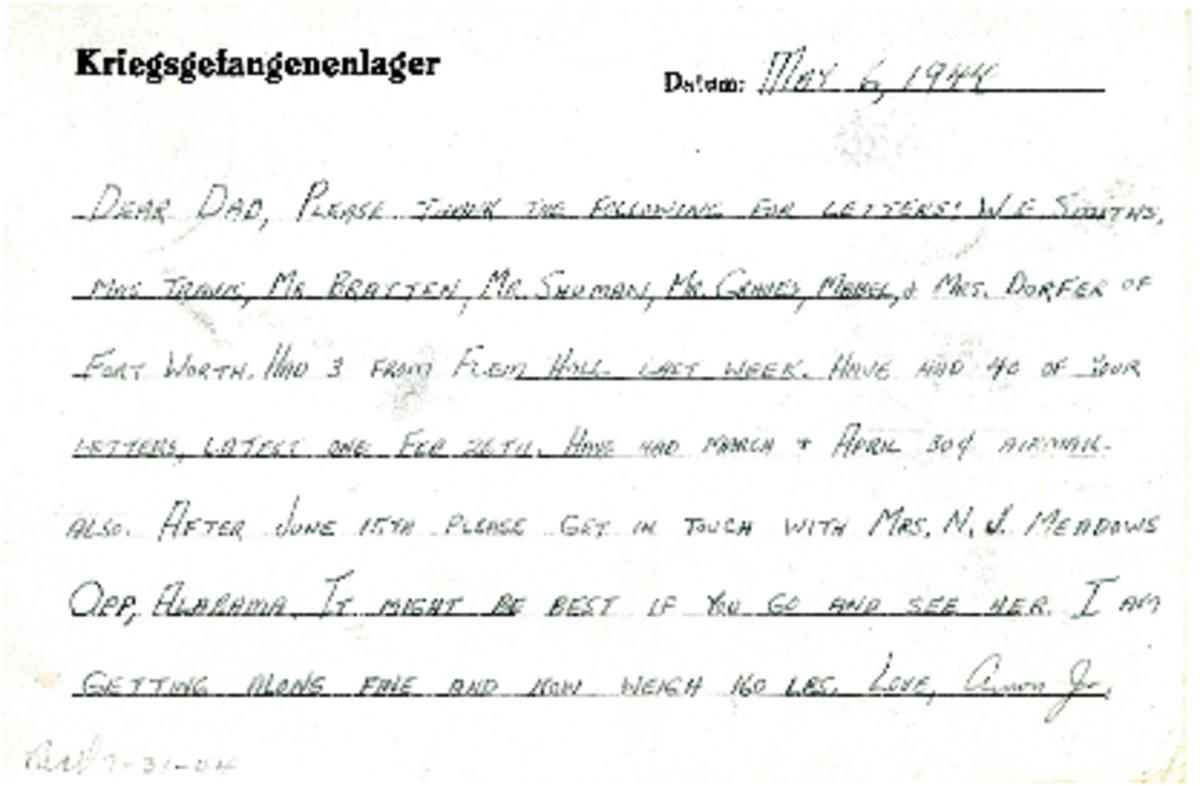 Kriegsgefangenenlager
Datum: May 6, 1944
Dear Dad, Please thank the following for letters: W E Smiths,
Mr. Bratten, Mr. Shuman, Mr. Graves, Mabel, & Mrs. Dorfer of
Fort Worth. Had 3 from Flem Hall last week. Have had 40 of your
letters, latest one Feb 26th. Have had March & April 30¢ airmail
also. After June 15th please get in touch with Mrs. N. J. Meadows
Opp, Alabama. It might be best if you go and see her. I am
getting along fine and now weigh 160 lbs. Love, Amon Jr.
7-31-44